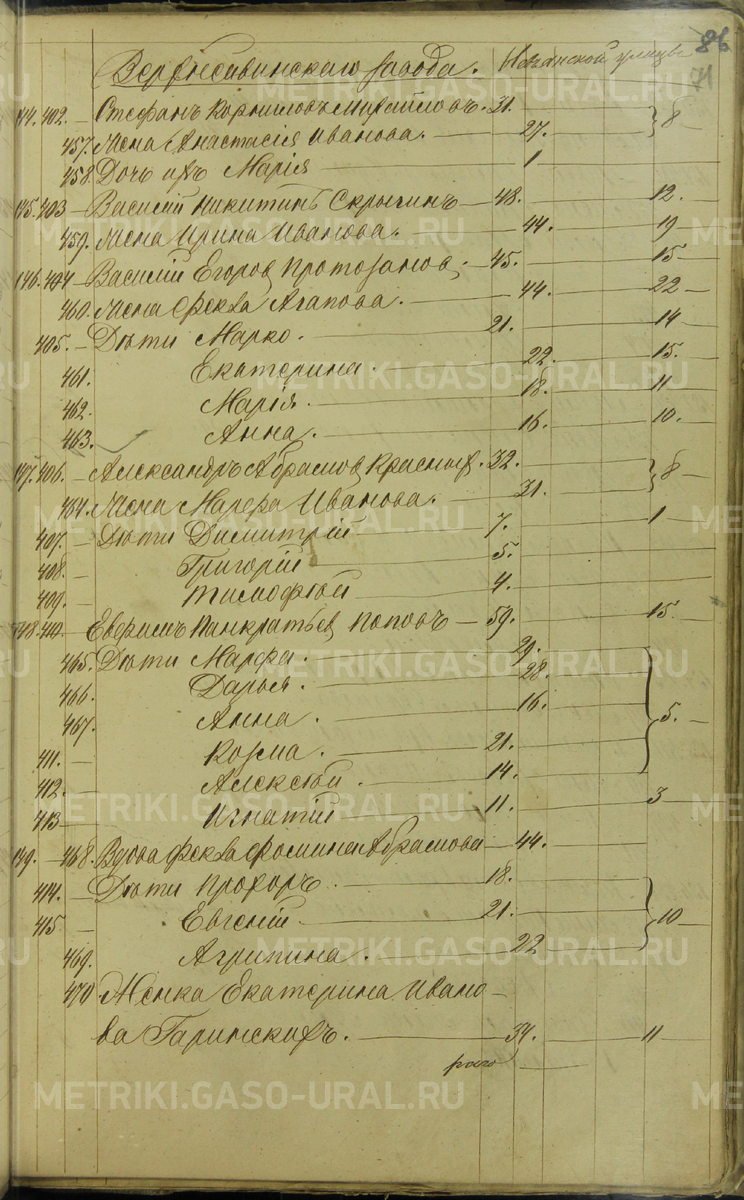 86
71
Верхнесавинскаго завода. Казанской улицы
144. 402. — Стефанъ Корниловъ Михайловъ. 31. 8 —
457. Жена Анастасія Иванова. — 27.
458. Дочь ихъ Марія — 1
145. 403 — Василій Никитинъ Скрыгинъ — 48. — 12.
459. Жена Ирина Иванова. — 44. — 19 —
146. 404 — Василій Егоровъ Протозановъ. — 45. — 15 —
460. Жена Фекла Агапова. — 44. — 22 —
405. — Дѣти Марко. — 21. — 14 —
461. Екатерина. — 22. — 15. —
462. Марія. — 18. — 11 —
463. Анна. — 16. — 10. —
147. 406. — Александръ Абрамовъ 32. 8 —
464. Жена Марфа Иванова. — 31.
407. — Дѣти Димитрій — 7. — 1
408. — Григорій — 5.
409. — Тимофей — 4.
148. 410. — Панкратьевъ Поповъ — 59. — 15.
465. Дѣти Марфа. — 29.
466. Дарья. — 28.
467. Анна. — 16. 5. —
411. — Козма. — 21.
412. — Алексѣй. — 14.
413 — Игнатій — 11. — 3
149. — 468. Вдова Фекла Фомина Абрамова — 44.
414. — Дѣти Прохоръ. — 18.
415 — Евгеній — 21. 10 —
469. Агрипина. — 22
470 Женка Екатерина Ивано-
ва Гаринскихъ. — 34. — 11
METRIKI.GASO-URAL.RU